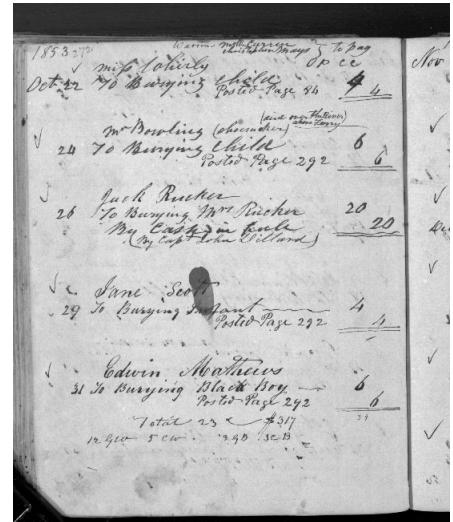 1853 272 Warwin Mgth Currin } to pay
Christopher Mays
Miss Coherly DP CC
Oct 22 To Burying Child 4
Posted Page 84 4
Mr Bowling (shoemaker) (lives over the River
24 To Burying Child 6
Posted Page 292 6
Jack Rucker
26 To Burying Mrs Rucker 20
By Cash in full 20
(By Capt John Dillard)
Jane Scott
29 To Burying Infant 4
Posted Page 292 4
Edwin Mathews
31 To Burying Black Boy 6
Posted Page 292 6
Total 23 $317
12 GW 5 CW 3 GB 3 CB
Nov